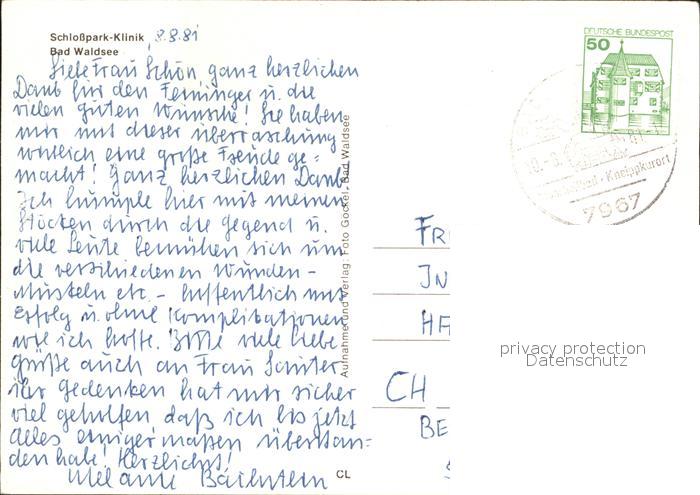 Schloßpark-Klinik 8.8.81
Bad Waldsee
Liebe Frau Schön, ganz herzlichen
Dank für den Feininger u. die
vielen guten Wünsche! Sie haben
mir mit dieser Überraschung
wirklich eine große Freude ge-
macht! Ganz herzlichen Dank
Ich humple hier mit meinen
Stöcken durch die Gegend u.
viele Leute bemühen sich um
die verschiedenen Wunden-
Muskeln etc. - hoffentlich mit
Erfolg u. ohne Komplikationen
wie ich hoffe. Bitte viele liebe
Grüße auch an Frau
ihr Gedenken hat mir sicher
viel geholfen daß ich bis jetzt
alles einigermaßen überstan-
den habe! Herzlichst!
Melanie
Aufnahme und Verlag: Foto Göckel, Bad Waldsee
CL
DEUTSCHE BUNDESPOST
50
Kneippkurort
7967
FR
IN
HA
CH
BE
privacy protection
Datenschutz